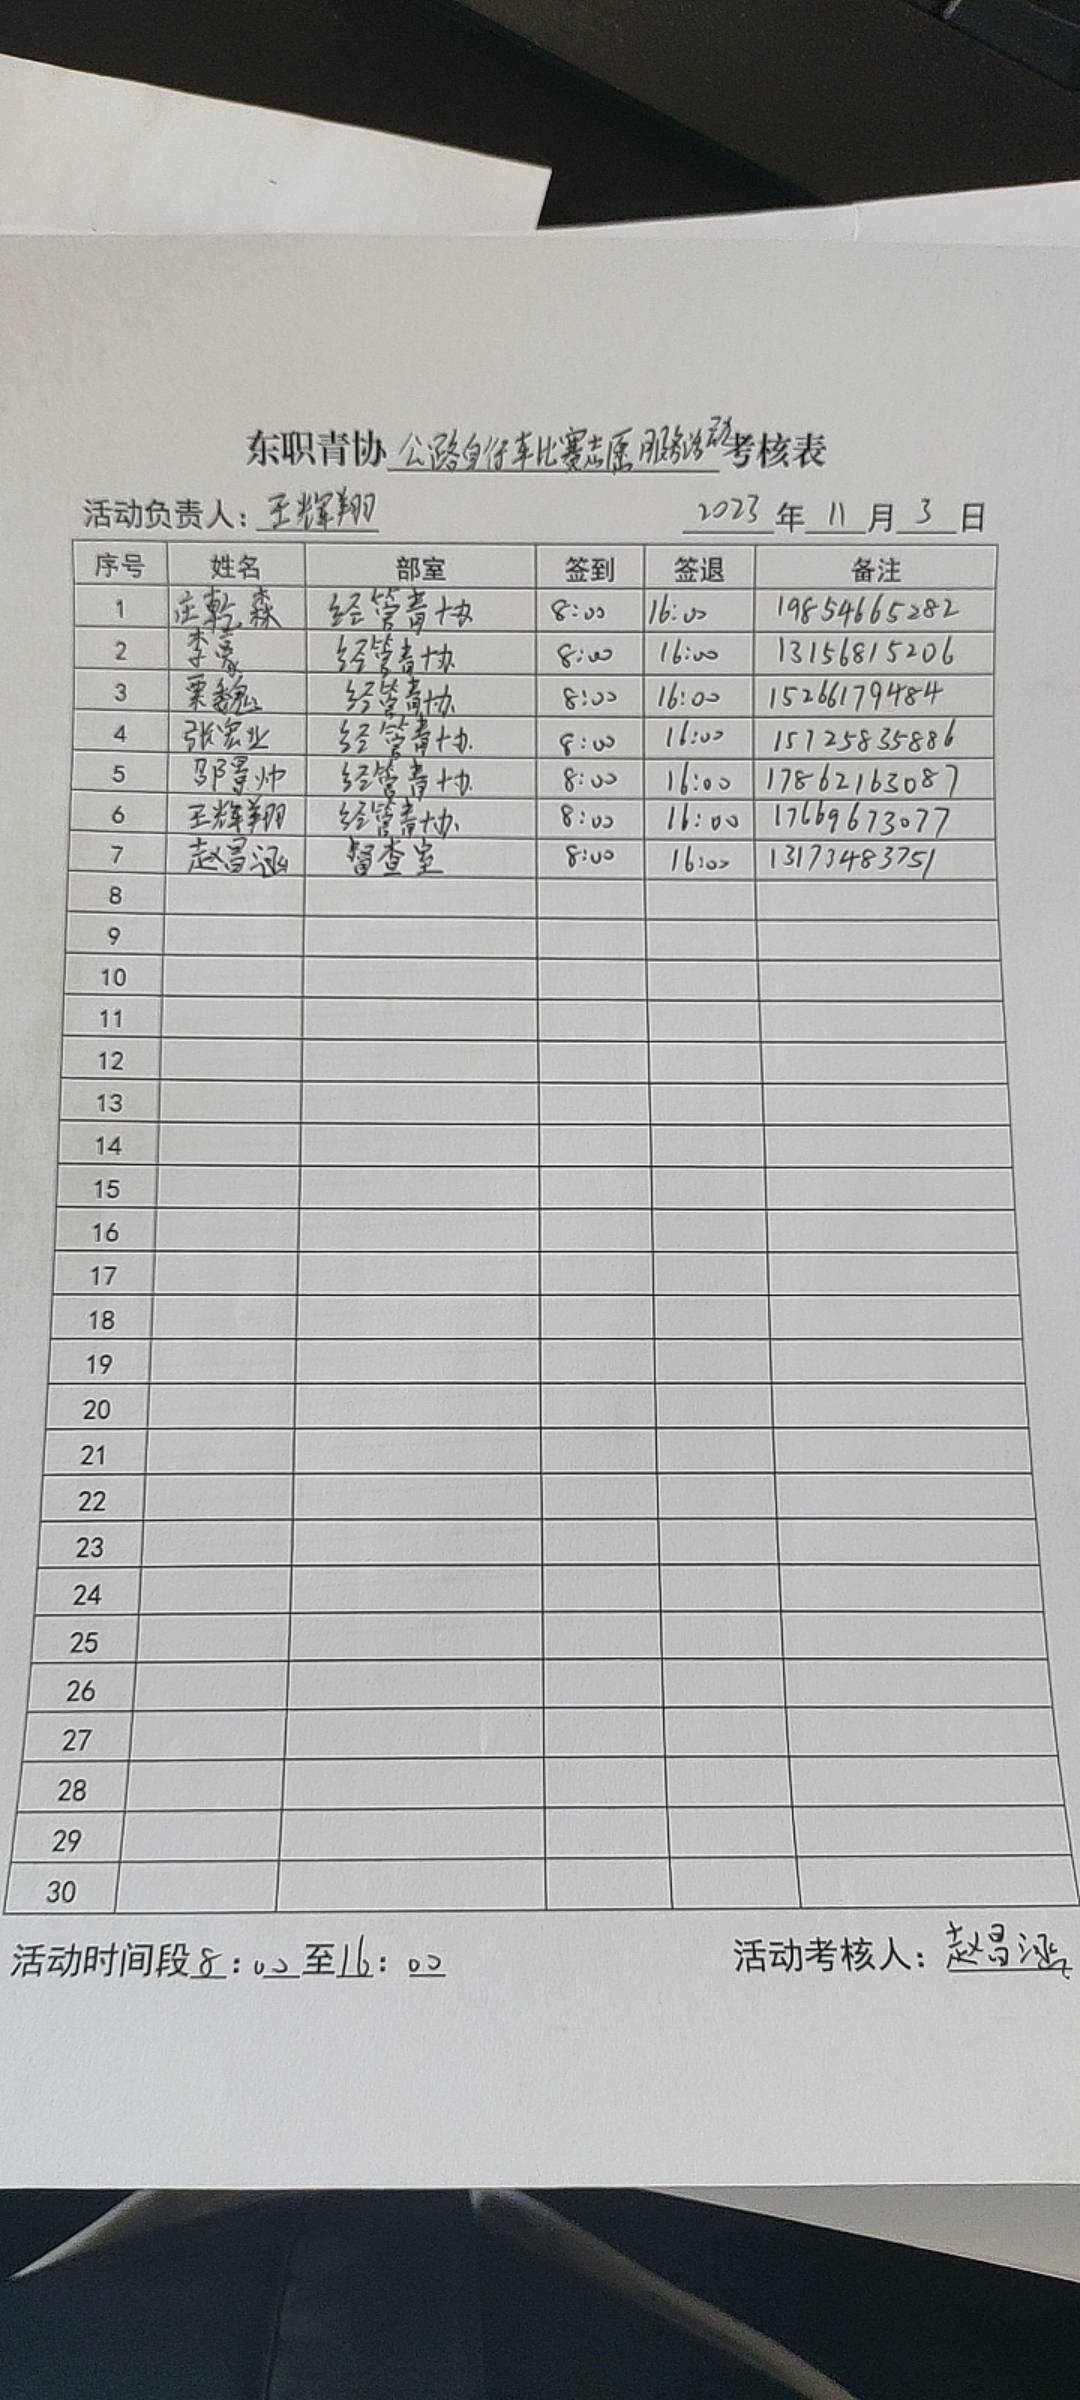 东职青协公路自行车比赛志愿服务活动考核表
活动负责人：王辉翔 2023年11月3日
序号 姓名 部室 签到 签退 备注
1 庄乾森 经管青协 8:00 16:00 19854665282
2 李豪 经管青协 8:00 16:00 13156815206
3 栗魏 经管青协 8:00 16:00 15266179484
4 张宏业 经管青协 8:00 16:00 15725835886
5 邹景帅 经管青协 8:00 16:00 17862163087
6 王辉翔 经管青协 8:00 16:00 17669673077
7 赵昌涵 督查室 8:00 16:00 13173483751
8
9
10
11
12
13
14
15
16
17
18
19
20
21
22
23
24
25
26
27
28
29
30
活动时间段8:00至16:00 活动考核人：赵昌涵